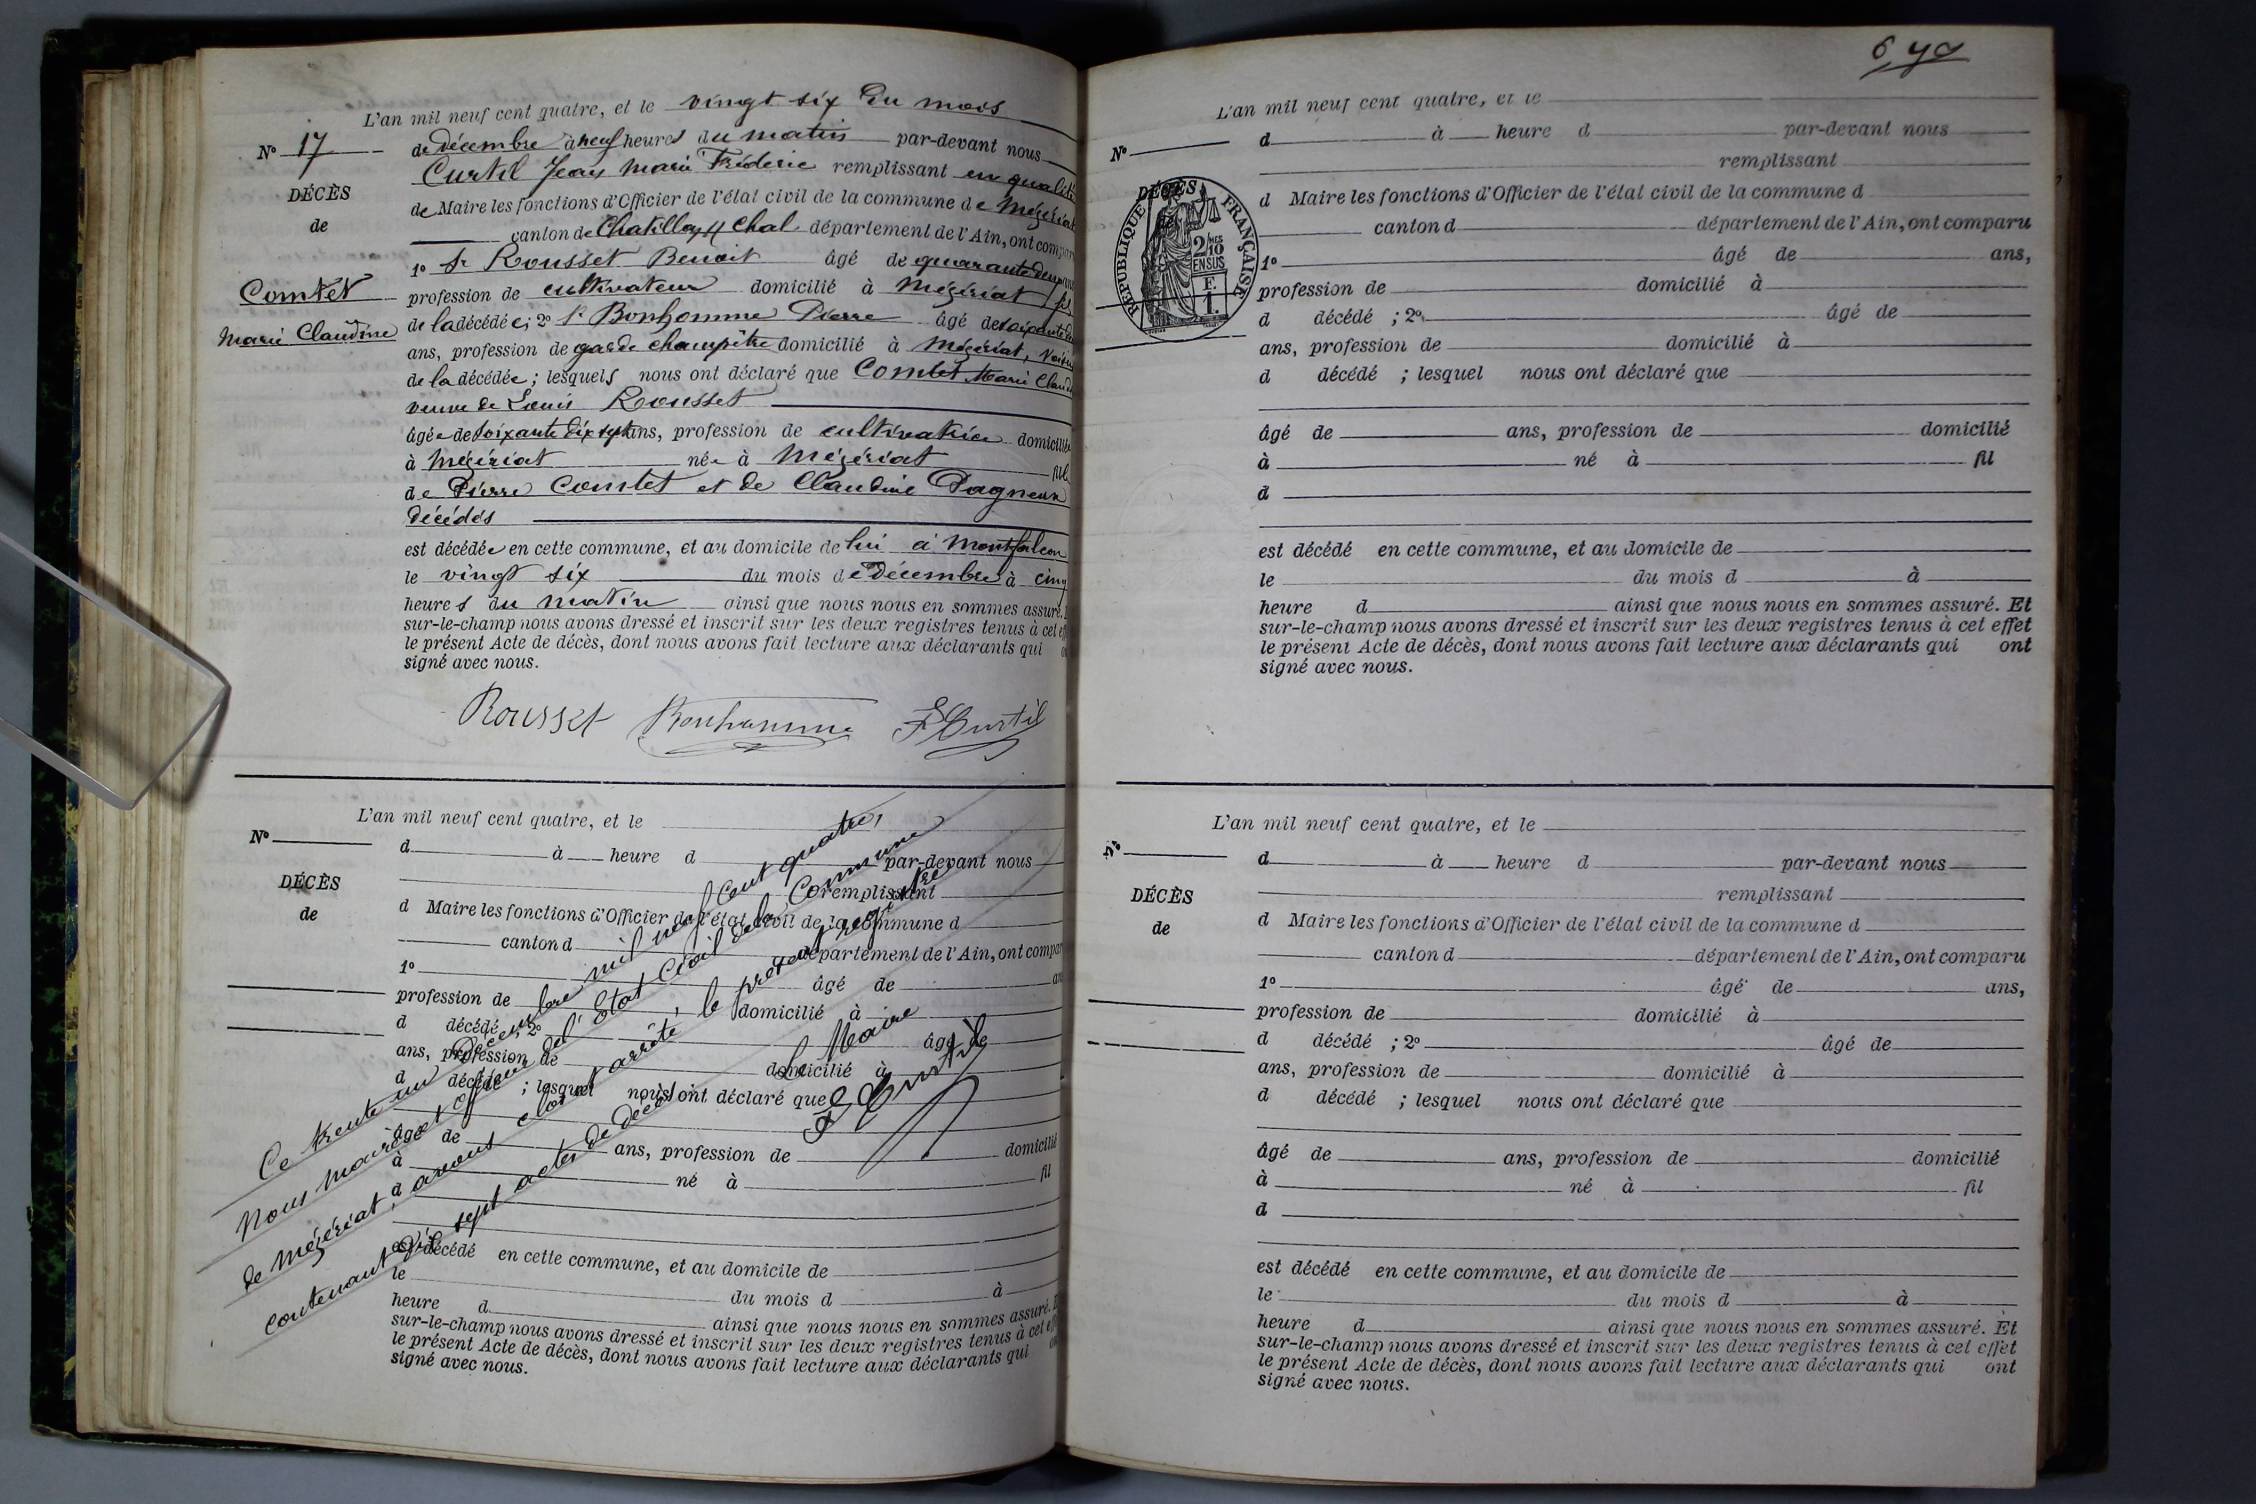 L'an mil neuf cent quatre, et le vingt six du mois
N° 17
de décembre à neuf heures du matin par-devant nous
Curtil Jean Marie Fréderic remplissant en qualité
DÉCÈS
de Maire les fonctions d'Officier de l'état civil de la commune de Mézériat
de
canton de Chatillon s/ Chal. département de l'Ain, ont compar
1° Sr Rousset Benoit âgé de quarante deux
Comtet
profession de cultivateur domicilié à Mézériat, fils
Marie Claudine
de la décédée; 2° Sr Bonhomme Pierre âgé de
ans, profession de garde champêtre domicilié à Mézériat, voisin
de la décédée; lesquels nous ont déclaré que Comtet Marie Claud
veuve de Louis Rousset
âgée de soixante dix sept ans, profession de cultivatrice domiciliée
à Mézériat née à Mézériat fille
de Pierre Comtet et de Claudine Pagneux
décédés
est décédée en cette commune, et au domicile de lui à Montfalcon
le vingt six du mois de décembre à cinq
heures du matin ainsi que nous nous en sommes assuré.
sur-le-champ nous avons dressé et inscrit sur les deux registres tenus à cet eff
le présent Acte de décès, dont nous avons fait lecture aux déclarants qui
signé avec nous.
Rousset Bonhomme F Curtil
L'an mil neuf cent quatre, et le
N°
d à heure d par-devant nous
remplissant
DÉCÈS
d Maire les fonctions d'Officier de l'état civil de la commune d
de
canton d département de l'Ain, ont compar
1° âgé de an
profession de domicilié à
d décédé ; 2° âgé de
ans, profession de domicilié à
d décédé ; lesquel nous ont déclaré que
âgé de ans, profession de domicilié
à né à fil
d
est décédé en cette commune, et au domicile de
le du mois d à
heure d ainsi que nous nous en sommes assuré.
sur-le-champ nous avons dressé et inscrit sur les deux registres tenus à cet eff
le présent Acte de décès, dont nous avons fait lecture aux déclarants qui
signé avec nous.
Ce trente un Décembre mil neuf cent quatre,
Nous maire et officier de l'Etat Civil de la Commune
de Mézériat, avons clos et arrêté, le présent registre
contenant dix sept actes de décès
Le Maire
F Curtil
6
L'an mil neuf cent quatre, et le
N°
d à heure d par-devant nous
remplissant
DÉCÈS
RÉPUBLIQUE FRANÇAISE
2/10
EN SUS
F.
1.
d Maire les fonctions d'Officier de l'état civil de la commune d
canton d département de l'Ain, ont comparu
1° âgé de ans,
profession de domicilié à
d décédé ; 2° âgé de
ans, profession de domicilié à
d décédé ; lesquel nous ont déclaré que
âgé de ans, profession de domicilié
à né à fil
d
est décédé en cette commune, et au domicile de
le du mois d à
heure d ainsi que nous nous en sommes assuré. Et
sur-le-champ nous avons dressé et inscrit sur les deux registres tenus à cet effet
le présent Acte de décès, dont nous avons fait lecture aux déclarants qui ont
signé avec nous.
L'an mil neuf cent quatre, et le
N°
d à heure d par-devant nous
remplissant
DÉCÈS
d Maire les fonctions d'Officier de l'état civil de la commune d
de
canton d département de l'Ain, ont comparu
1° âgé de ans,
profession de domicilié à
d décédé ; 2° âgé de
ans, profession de domicilié à
d décédé ; lesquel nous ont déclaré que
âgé de ans, profession de domicilié
à né à fil
d
est décédé en cette commune, et au domicile de
le du mois d à
heure d ainsi que nous nous en sommes assuré. Et
sur-le-champ nous avons dressé et inscrit sur les deux registres tenus à cet effet
le présent Acte de décès, dont nous avons fait lecture aux déclarants qui ont
signé avec nous.